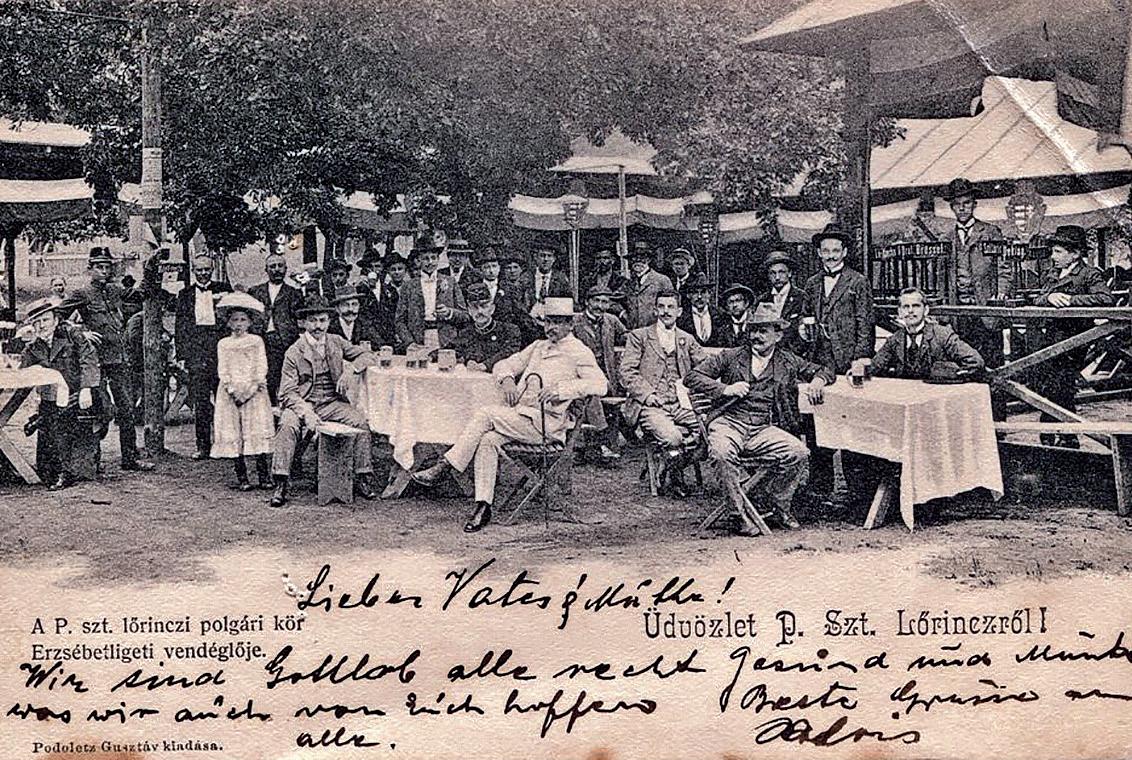 Lieber Vater & Mutter!
A P. szt. lőrinczi polgári kör
Erzsébetligeti vendéglője.
Üdvözlet P. Szt. Lőrinczről!
Wir sind Gottlob alle recht gesund und
was wir auch von Euch hoffen
Beste Grüsse an
alle.
Podoletz Gusztáv kiadása.